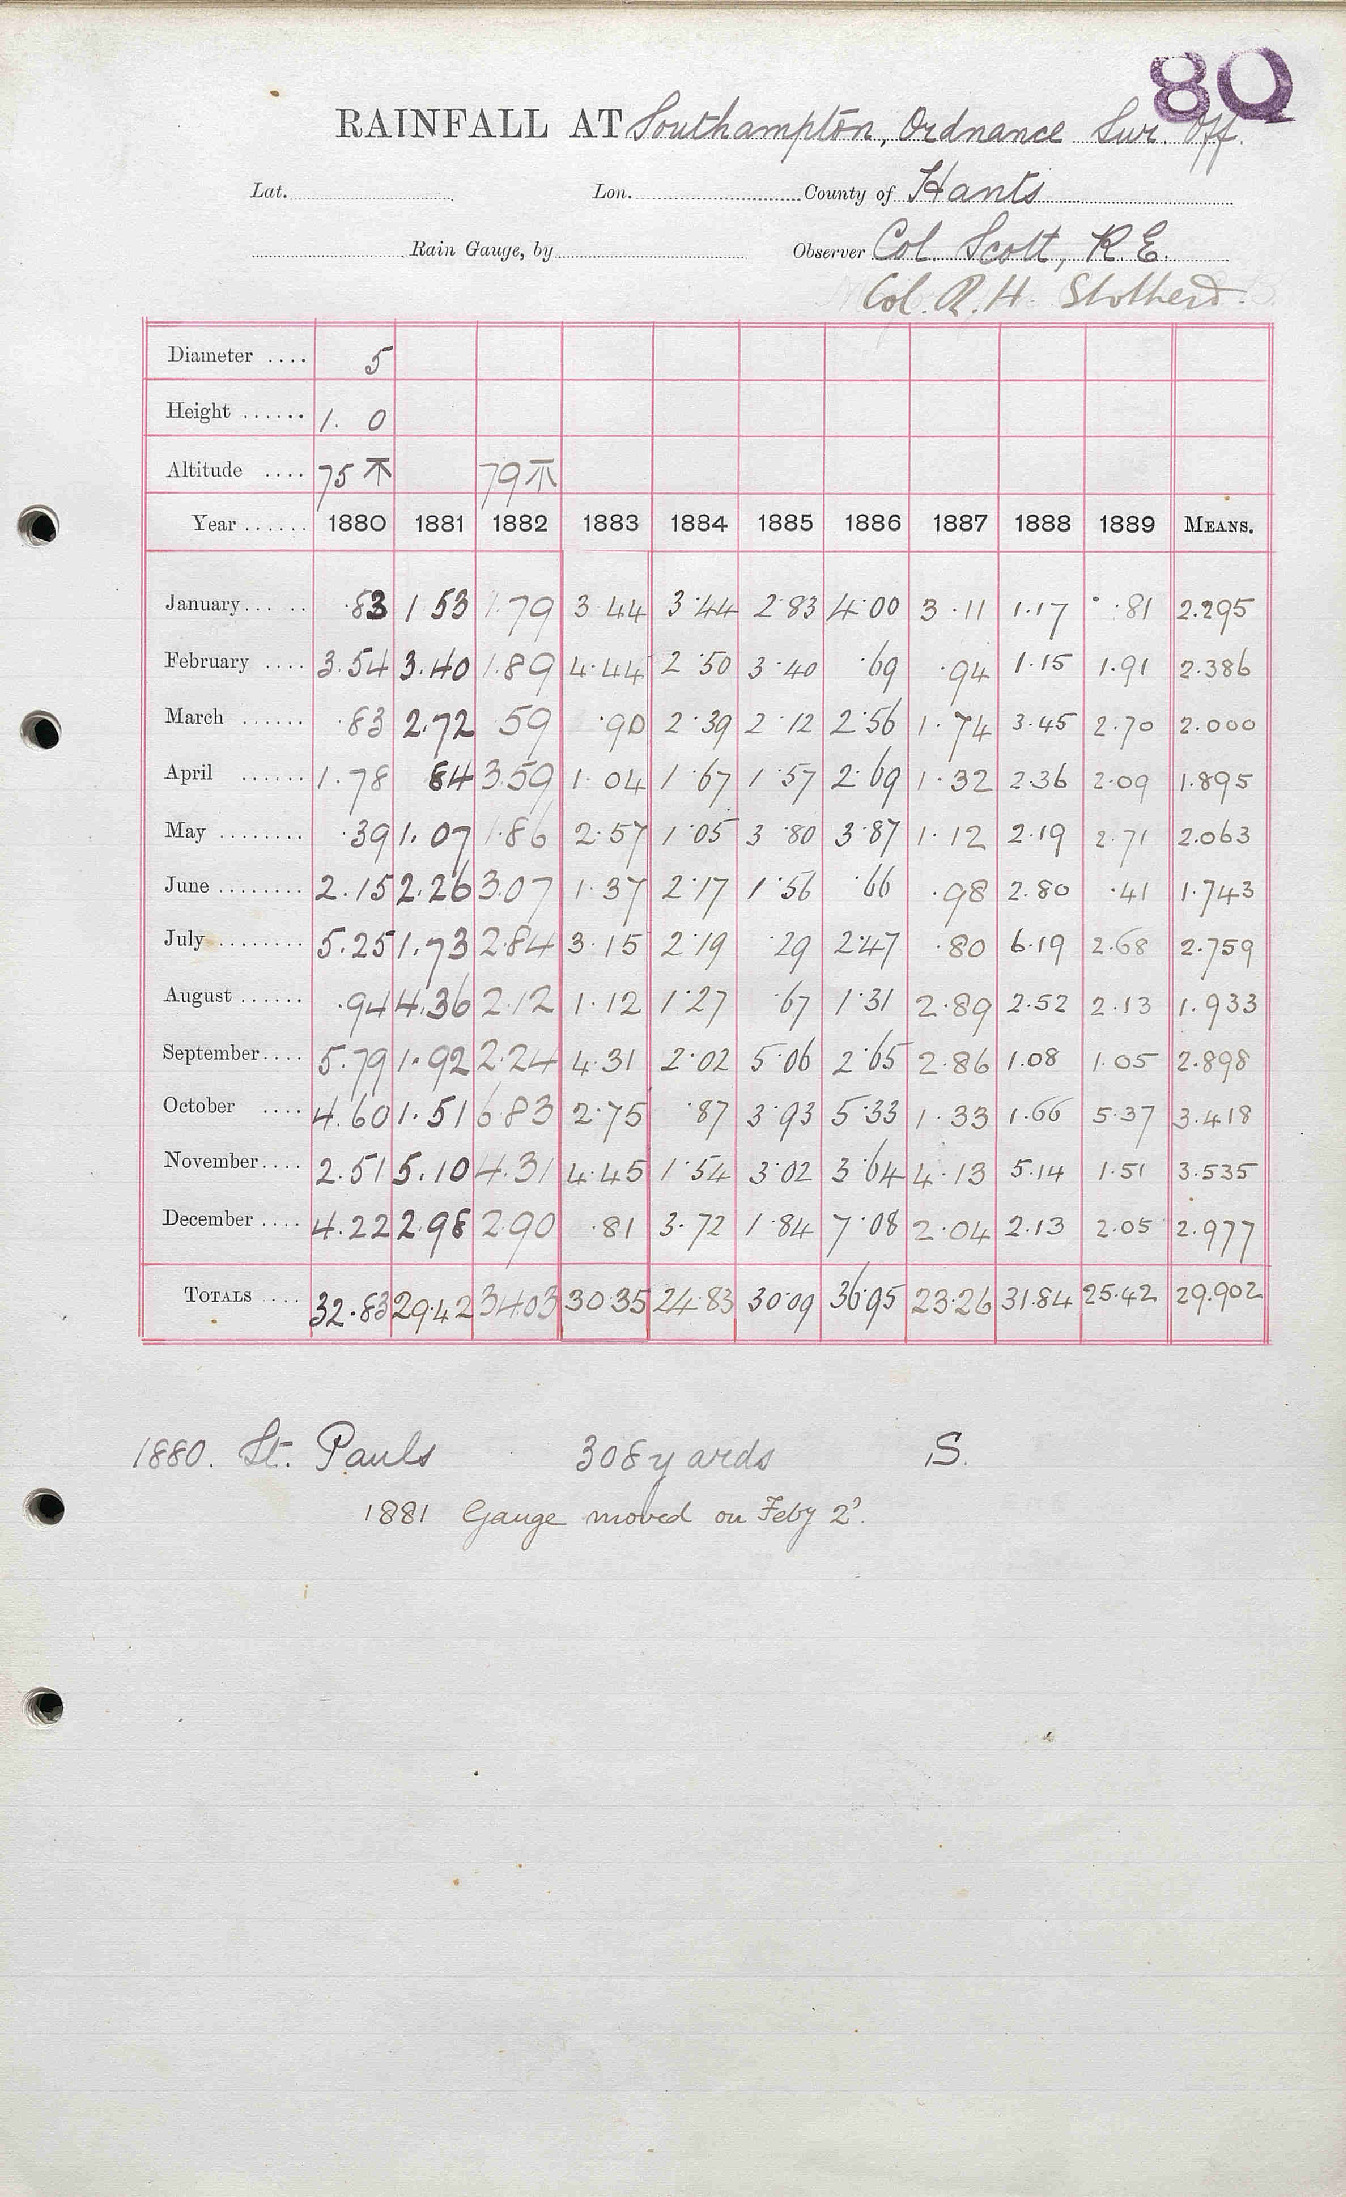 80
RAINFALL AT Southampton, Ordnance Sur. Off.
Lat. Lon. County of Hants
Rain Gauge, by Observer Col. Scott, R.E.
Col. R. H. Stotherd.
Diameter .... 5
Height ...... 1. 0
Altitude .... 75 79
Year ...... 1880 1881 1882 1883 1884 1885 1886 1887 1888 1889 MEANS.
January... .. .83 1 53 1.79 3.44 3.44 2.83 4.00 3.11 1.17 .81 2.295
February .... 3.54 3.40 1.89 4.44 2.50 3.40 .69 .94 1.15 1.91 2.386
March ...... .83 2.72 .59 .90 2.39 2.12 2.56 1.74 3.45 2.70 2.000
April ...... 1.78 84 3.59 1.04 1.67 1.57 2.69 1.32 2.36 2.09 1.895
May ........ .39 1.07 1.86 2.57 1.05 3.80 3.87 1.12 2.19 2.71 2.063
June ........ 2.15 2.26 3.07 1.37 2.17 1.56 .66 .98 2.80 .41 1.743
July ........ 5.25 1.73 2.84 3.15 2.19 .29 2.47 .80 6.19 2.68 2.759
August ...... .94 4.36 2.12 1.12 1.27 .67 1.31 2.89 2.52 2.13 1.933
September.... 5.79 1.92 2.24 4.31 2.02 5.06 2.65 2.86 1.08 1.05 2.898
October .... 4.60 1.51 6.83 2.75 .87 3.93 5.33 1.33 1.66 5.37 3.418
November.... 2.51 5.10 4.31 4.45 1.54 3.02 3.64 4.13 5.14 1.51 3.535
December .... 4.22 2.98 2.90 .81 3.72 1.84 7.08 2.04 2.13 2.05 2.977
TOTALS .... 32.83 29.42 34.03 30.35 24.83 30.09 36.95 23.26 31.84 25.42 29.902
1880. St. Pauls 308 yards S.
1881 Gauge moved on Feby 2'.